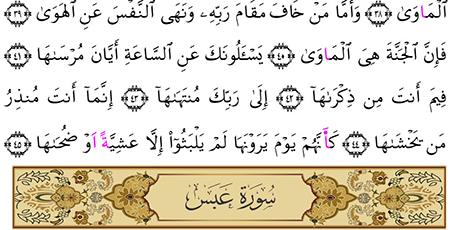 ٱلۡمَاوَىٰ ﴿٣٨﴾ وَأَمَّا مَنۡ خَافَ مَقَامَ رَبِّهِۦ وَنَهَى ٱلنَّفۡسَ عَنِ ٱلۡهَوَىٰ ﴿٣٩﴾
فَإِنَّ ٱلۡجَنَّةَ هِيَ ٱلۡمَاوَىٰ ﴿٤٠﴾ يَسۡـَٔلُونَكَ عَنِ ٱلسَّاعَةِ أَيَّانَ مُرۡسَىٰهَا ﴿٤١﴾
فِيمَ أَنتَ مِن ذِكۡرَىٰهَا ﴿٤٢﴾ إِلَىٰ رَبِّكَ مُنتَهَىٰهَا ﴿٤٣﴾ إِنَّمَا أَنتَ مُنذِرُ
مَن يَخۡشَىٰهَا ﴿٤٤﴾ كَأَنَّهُمۡ يَوۡمَ يَرَوۡنَهَا لَمۡ يَلۡبَثُوٓاْ إِلَّا عَشِيَّةً اَوۡ ضُحَىٰهَا ﴿٤٥﴾
سُورَةُ عَبَسَ